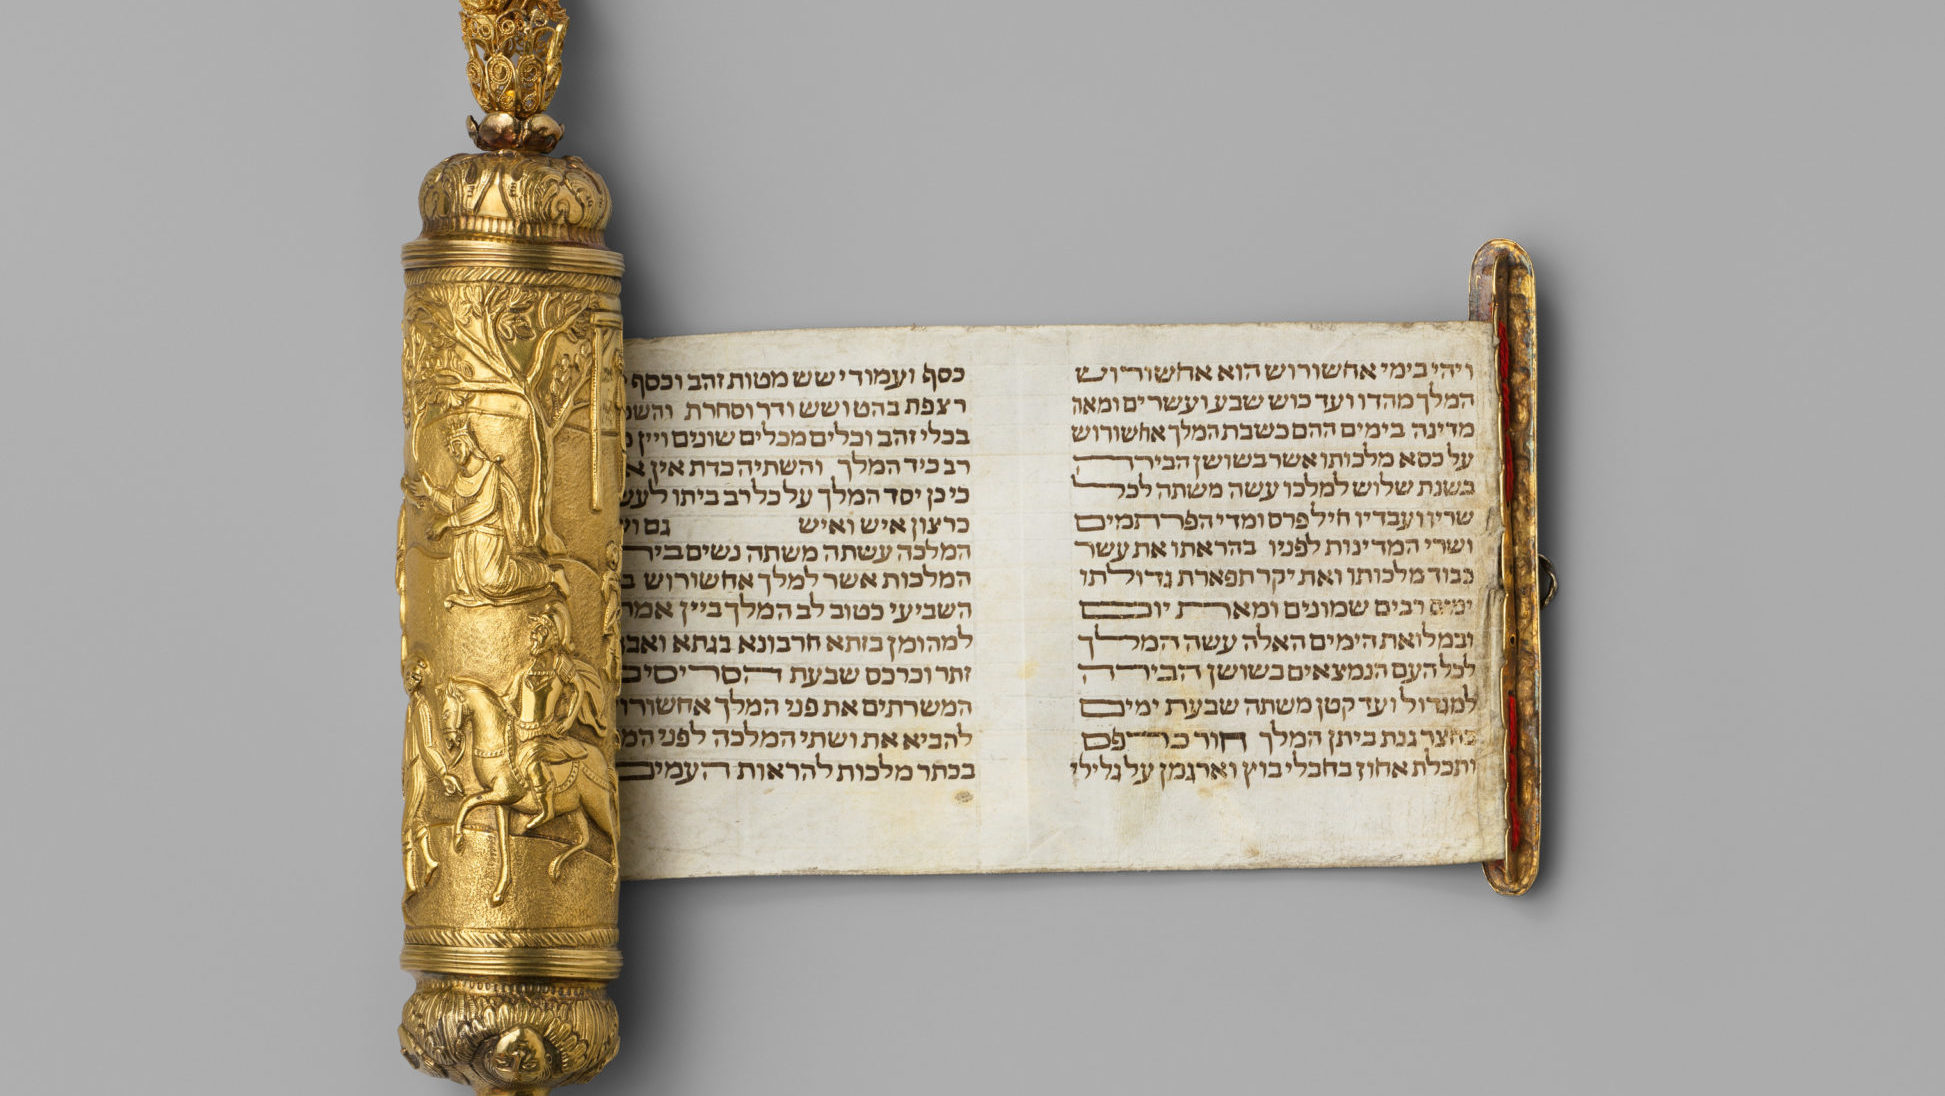 ויהי בימי אחשורוש הוא אחשורוש
המלך מהדו ועד כוש שבע ועשרים ומאה
מדינה בימים ההם כשבת המלך אחשורוש
על כסא מלכותו אשר בשושן הבירה
בשנת שלוש למלכו עשה משתה לכל
שריו ועבדיו חיל פרס ומדי הפרתמים
ושרי המדינות לפניו בהראתו את עשר
כבוד מלכותו ואת יקר תפארת גדולתו
ימים רבים שמונים ומאת יום
ובמלואת הימים האלה עשה המלך
לכל העם הנמצאים בשושן הבירה
למגדול ועד קטן משתה שבעת ימים
בחצר גנת ביתן המלך חור כרפס
ותכלת אחוז בחבלי בוץ וארגמן על גלילי
כסף ועמודי שש מטות זהב וכסף
רצפת בהט ושש ודר וסחרת
בכלי זהב וכלים מכלים שונים ויין
רב כיד המלך והשתיה כדת אין
כי כן יסד המלך על כל רב ביתו
כרצון איש ואיש גם
המלכה עשתה משתה נשים
המלכות אשר למלך אחשורוש
השביעי כטוב לב המלך ביין
למהומן בזתא חרבונא בגתא
זתר וכרכס שבעת הסריסים
המשרתים את פני המלך
להביא את ושתי המלכה לפני
בכתר מלכות להראות העמים